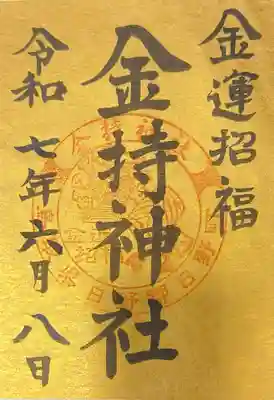 金運招福
金持神社
令和七年六月八日